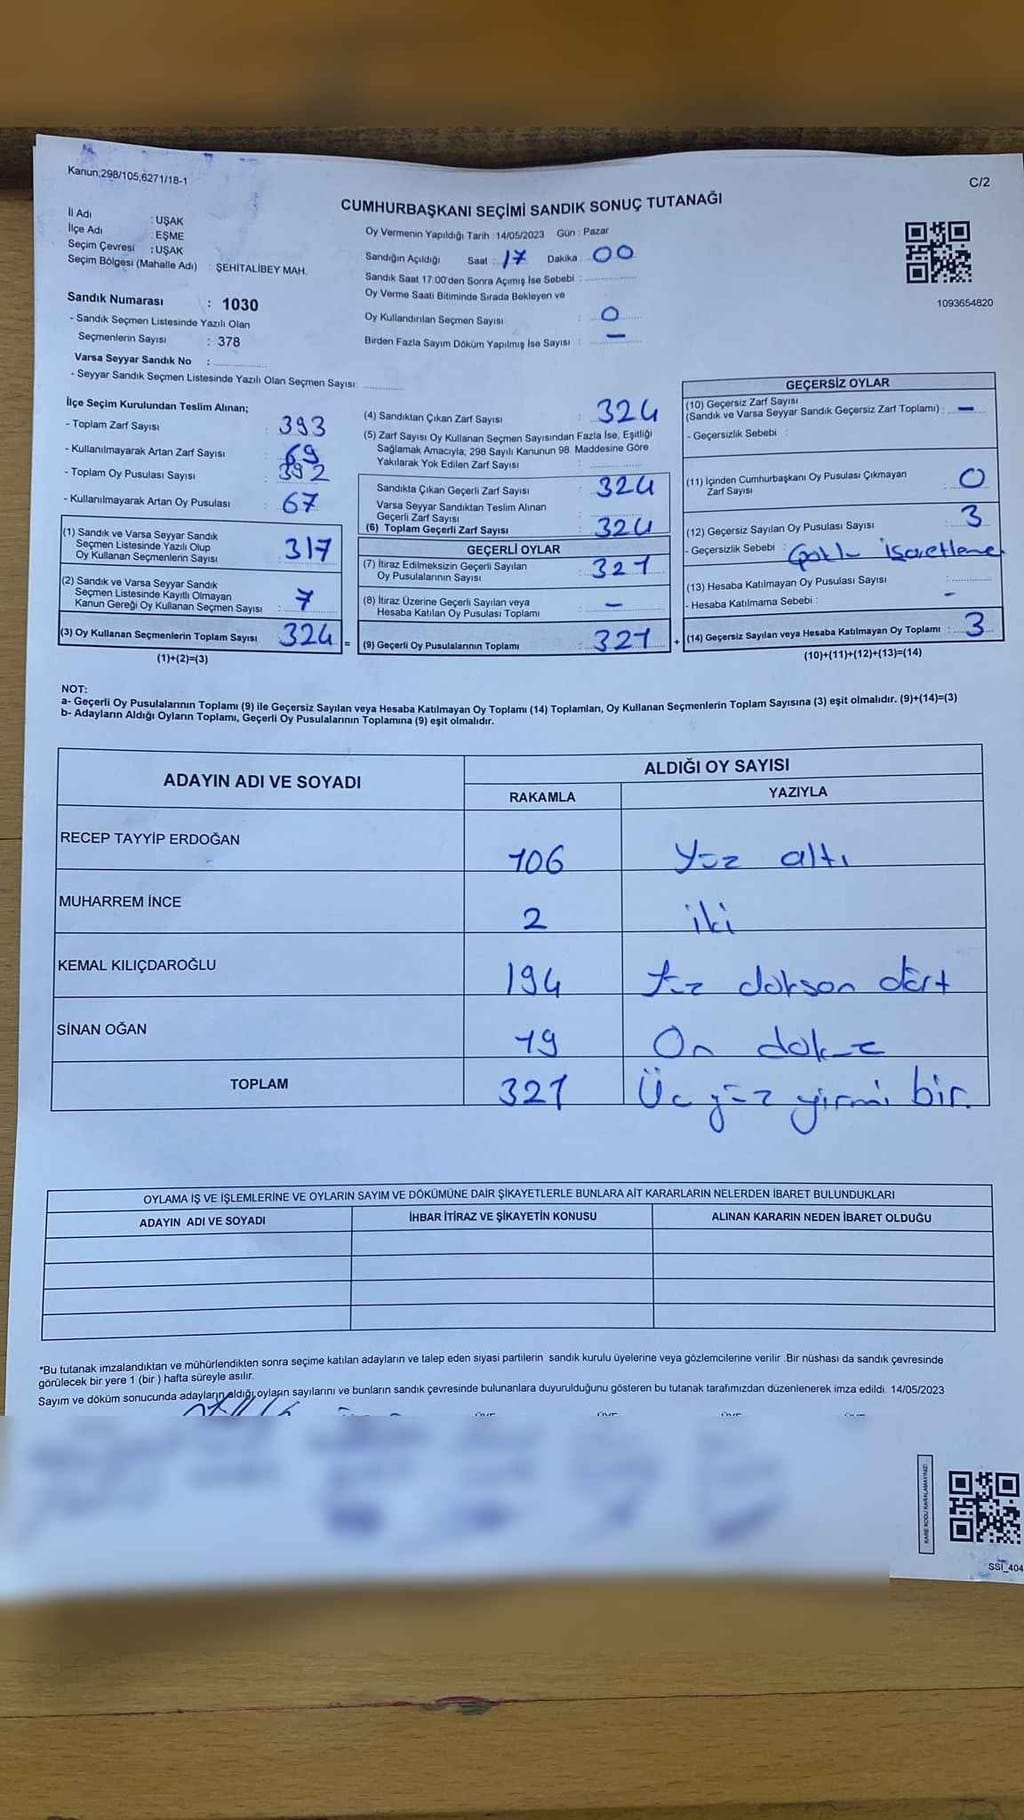 Kanun;298/105,6271/18-1
C/2
CUMHURBAŞKANI SEÇİMİ SANDIK SONUÇ TUTANAĞI
İl Adı : UŞAK
İlçe Adı : EŞME
Seçim Çevresi : UŞAK
Seçim Bölgesi (Mahalle Adı) : ŞEHİTALİBEY MAH.
Sandık Numarası : 1030
- Sandık Seçmen Listesinde Yazılı Olan
Seçmenlerin Sayısı : 378
Varsa Seyyar Sandık No :
- Seyyar Sandık Seçmen Listesinde Yazılı Olan Seçmen Sayısı
Oy Vermenin Yapıldığı Tarih : 14/05/2023 Gün : Pazar
Sandığın Açıldığı Saat : 17 Dakika : 00
Sandık Saat 17:00'den Sonra Açımış İse Sebebi :
Oy Verme Saati Bitiminde Sırada Bekleyen ve
Oy Kullandırılan Seçmen Sayısı : 0
Birden Fazla Sayım Döküm Yapılmış İse Sayısı : —
1093654820
İlçe Seçim Kurulundan Teslim Alınan;
- Toplam Zarf Sayısı : 393
- Kullanılmayarak Artan Zarf Sayısı : 69
- Toplam Oy Pusulası Sayısı : 392
- Kullanılmayarak Artan Oy Pusulası : 67
(1) Sandık ve Varsa Seyyar Sandık
Seçmen Listesinde Yazılı Olup
Oy Kullanan Seçmenlerin Sayısı : 317
(2) Sandık ve Varsa Seyyar Sandık
Seçmen Listesinde Kayıtlı Olmayan
Kanun Gereği Oy Kullanan Seçmen Sayısı : 7
(3) Oy Kullanan Seçmenlerin Toplam Sayısı 324 =
(1)+(2)=(3)
(4) Sandıktan Çıkan Zarf Sayısı : 324
(5) Zarf Sayısı Oy Kullanan Seçmen Sayısından Fazla İse, Eşitliği
Sağlamak Amacıyla; 298 Sayılı Kanunun 98. Maddesine Göre
Yakılarak Yok Edilen Zarf Sayısı :
Sandıkta Çıkan Geçerli Zarf Sayısı : 324
Varsa Seyyar Sandıktan Teslim Alınan
Geçerli Zarf Sayısı
(6) Toplam Geçerli Zarf Sayısı : 324
GEÇERLİ OYLAR
(7) İtiraz Edilmeksizin Geçerli Sayılan
Oy Pusulalarının Sayısı : 321
(8) İtiraz Üzerine Geçerli Sayılan veya
Hesaba Katılan Oy Pusulası Toplamı : —
(9) Geçerli Oy Pusulalarının Toplamı : 321 +
GEÇERSİZ OYLAR
(10) Geçersiz Zarf Sayısı
(Sandık ve Varsa Seyyar Sandık Geçersiz Zarf Toplamı) : —
- Geçersizlik Sebebi :
(11) İçinden Cumhurbaşkanı Oy Pusulası Çıkmayan
Zarf Sayısı : 0
(12) Geçersiz Sayılan Oy Pusulası Sayısı : 3
- Geçersizlik Sebebi : işaretleme
(13) Hesaba Katılmayan Oy Pusulası Sayısı :
- Hesaba Katılmama Sebebi : -
(14) Geçersiz Sayılan veya Hesaba Katılmayan Oy Toplamı : 3
(10)+(11)+(12)+(13)=(14)
NOT:
a- Geçerli Oy Pusulalarının Toplamı (9) ile Geçersiz Sayılan veya Hesaba Katılmayan Oy Toplamı (14) Toplamları, Oy Kullanan Seçmenlerin Toplam Sayısına (3) eşit olmalıdır. (9)+(14)=(3)
b- Adayların Aldığı Oyların Toplamı, Geçerli Oy Pusulalarının Toplamına (9) eşit olmalıdır.
ADAYIN ADI VE SOYADI ALDIĞI OY SAYISI
RAKAMLA YAZIYLA
RECEP TAYYİP ERDOĞAN 106 Yüz altı
MUHARREM İNCE 2 iki
KEMAL KILIÇDAROĞLU 194 Yüz doksan dört
SİNAN OĞAN 19 On dokuz
TOPLAM 321 Üç yüz yirmi bir.
OYLAMA İŞ VE İŞLEMLERİNE VE OYLARIN SAYIM VE DÖKÜMÜNE DAİR ŞİKAYETLERLE BUNLARA AİT KARARLARIN NELERDEN İBARET BULUNDUKLARI
ADAYIN ADI VE SOYADI İHBAR İTİRAZ VE ŞİKAYETİN KONUSU ALINAN KARARIN NEDEN İBARET OLDUĞU
*Bu tutanak imzalandıktan ve mühürlendikten sonra seçime katılan adayların ve talep eden siyasi partilerin sandık kurulu üyelerine veya gözlemcilerine verilir .Bir nüshası da sandık çevresinde
görülecek bir yere 1 (bir ) hafta süreyle asılır.
Sayım ve döküm sonucunda adayların aldığı oyların sayılarını ve bunların sandık çevresinde bulunanlara duyurulduğunu gösteren bu tutanak tarafımızdan düzenlenerek imza edildi. 14/05/2023
KARE KODU KARALAMAYINIZ!
SSİ_404